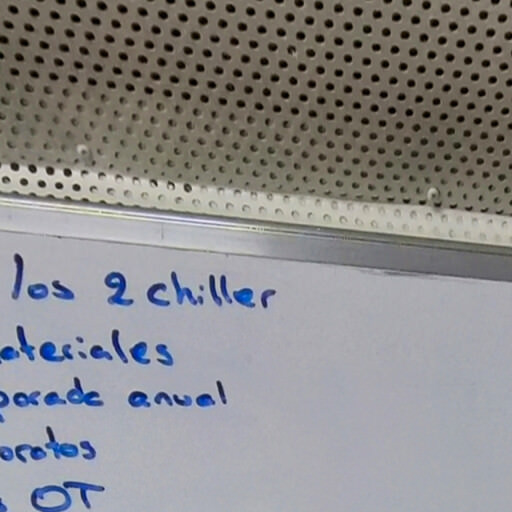 los 2 chiller
ateriales
porada anual
oratos
OT